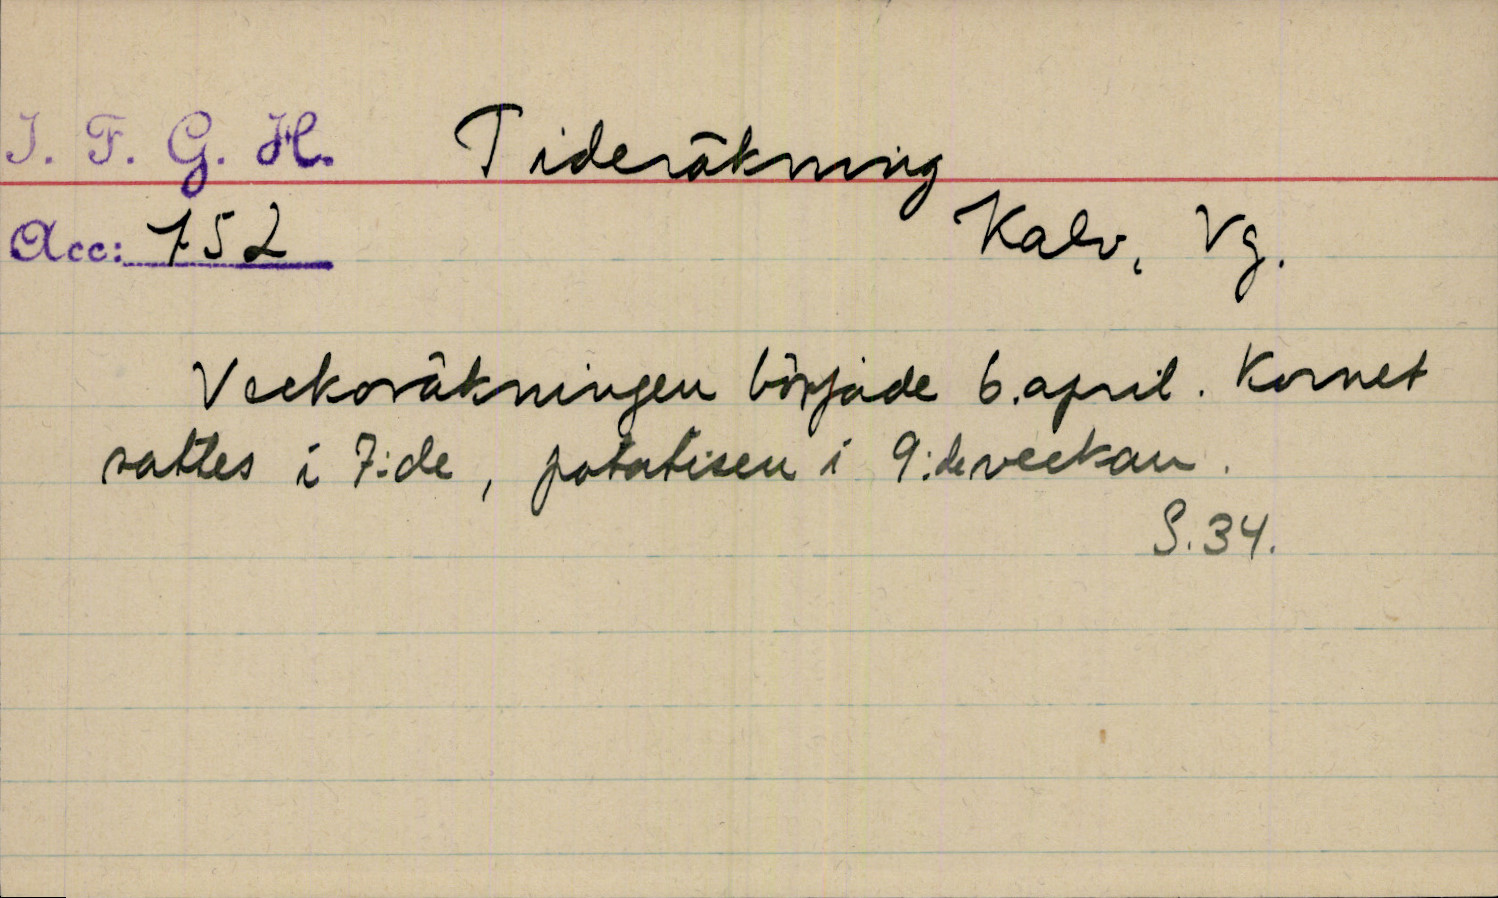 I. F. G. H. Tideräkning
Acc: 752 Kalv, Vg.
Veckoräkningen började 6.april. Kornet
sattes i 7:de, potatisen i 9:de veckan.
S.34.